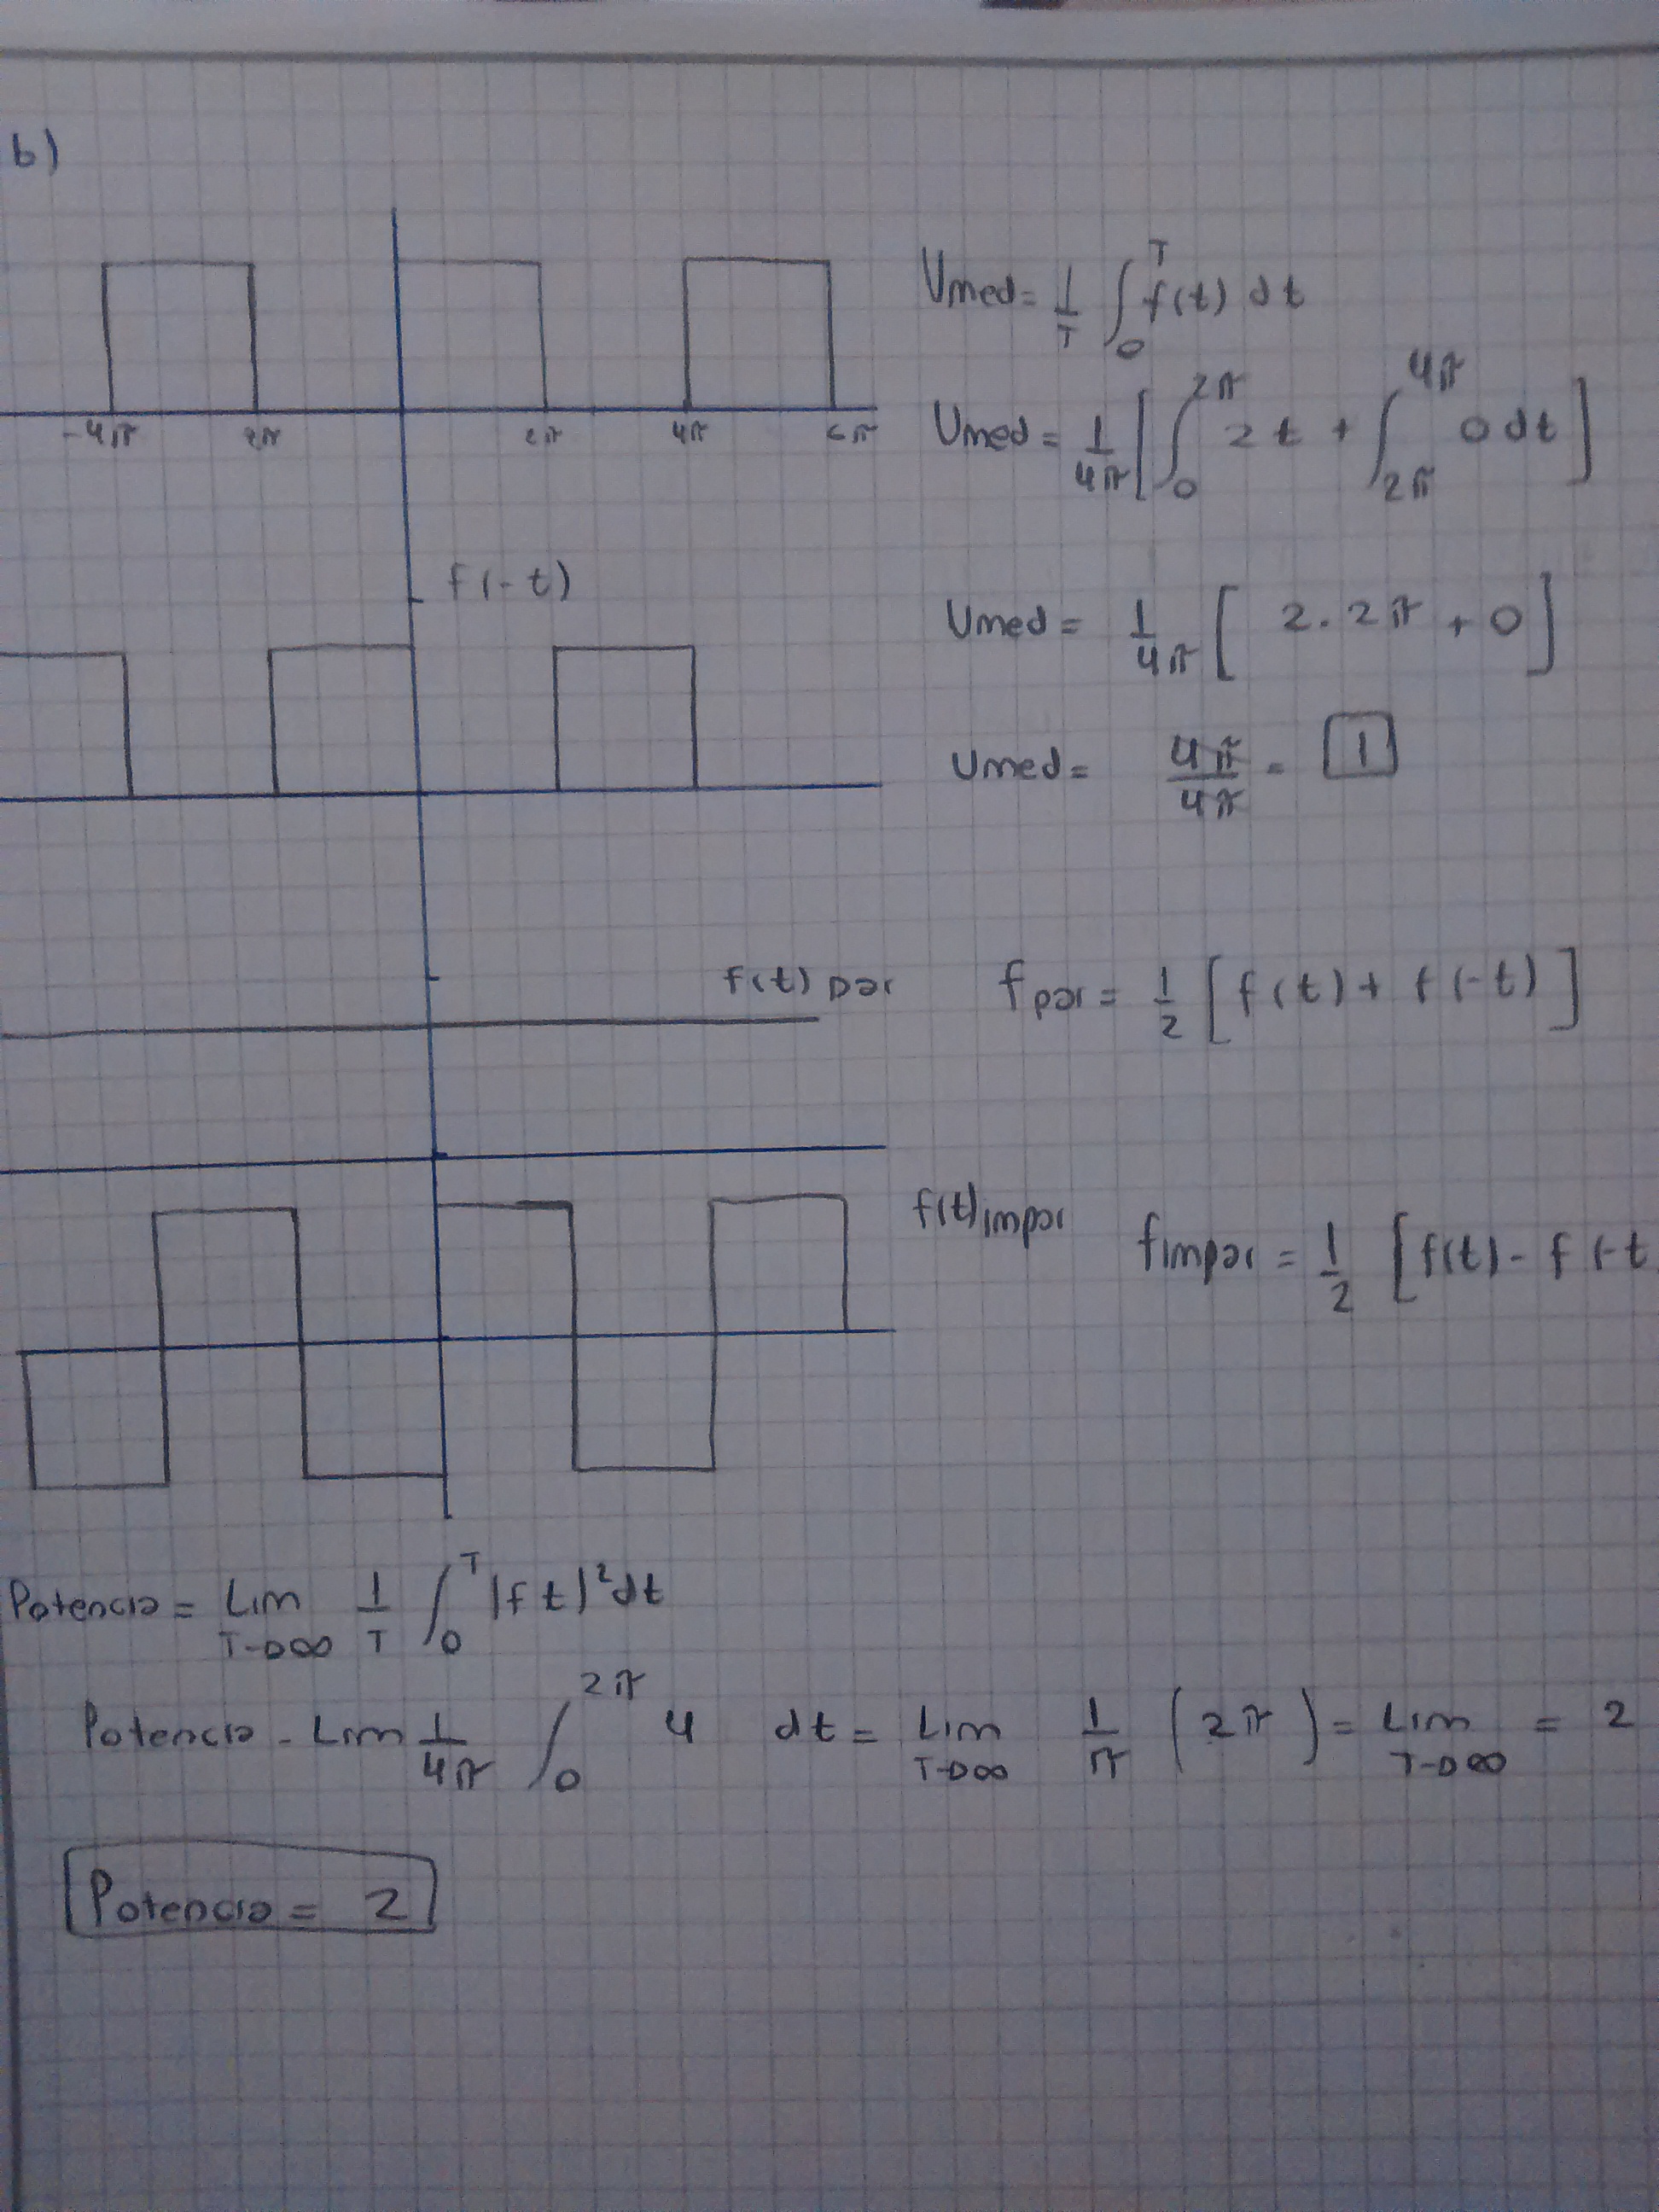 b)
Vmed = 1/T ∫₀ᵀ f(t) dt
-4π 2π 2π 4π 6π
Vmed = 1/4π [ ∫₀^2π 2 t + ∫_2π^4π 0 dt ]
f(-t)
Vmed = 1/4π [ 2 . 2π + 0 ]
Vmed = 4π/4π = 1
f(t) par
fpar = 1/2 [ f(t) + f(-t) ]
f(t) impar
fimpar = 1/2 [ f(t) - f(-t
Potencia = Lim T→∞ 1/T ∫₀ᵀ |f t)² dt
Potencia - Lim 1/4π ∫₀^2π 4 dt = Lim T→∞ 1/π ( 2π ) = Lim T→∞ = 2
Potencia = 2